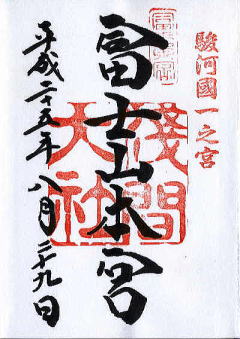 駿河國一之宮
富士山本宮
淺間大社
平成二十五年八月二十九日